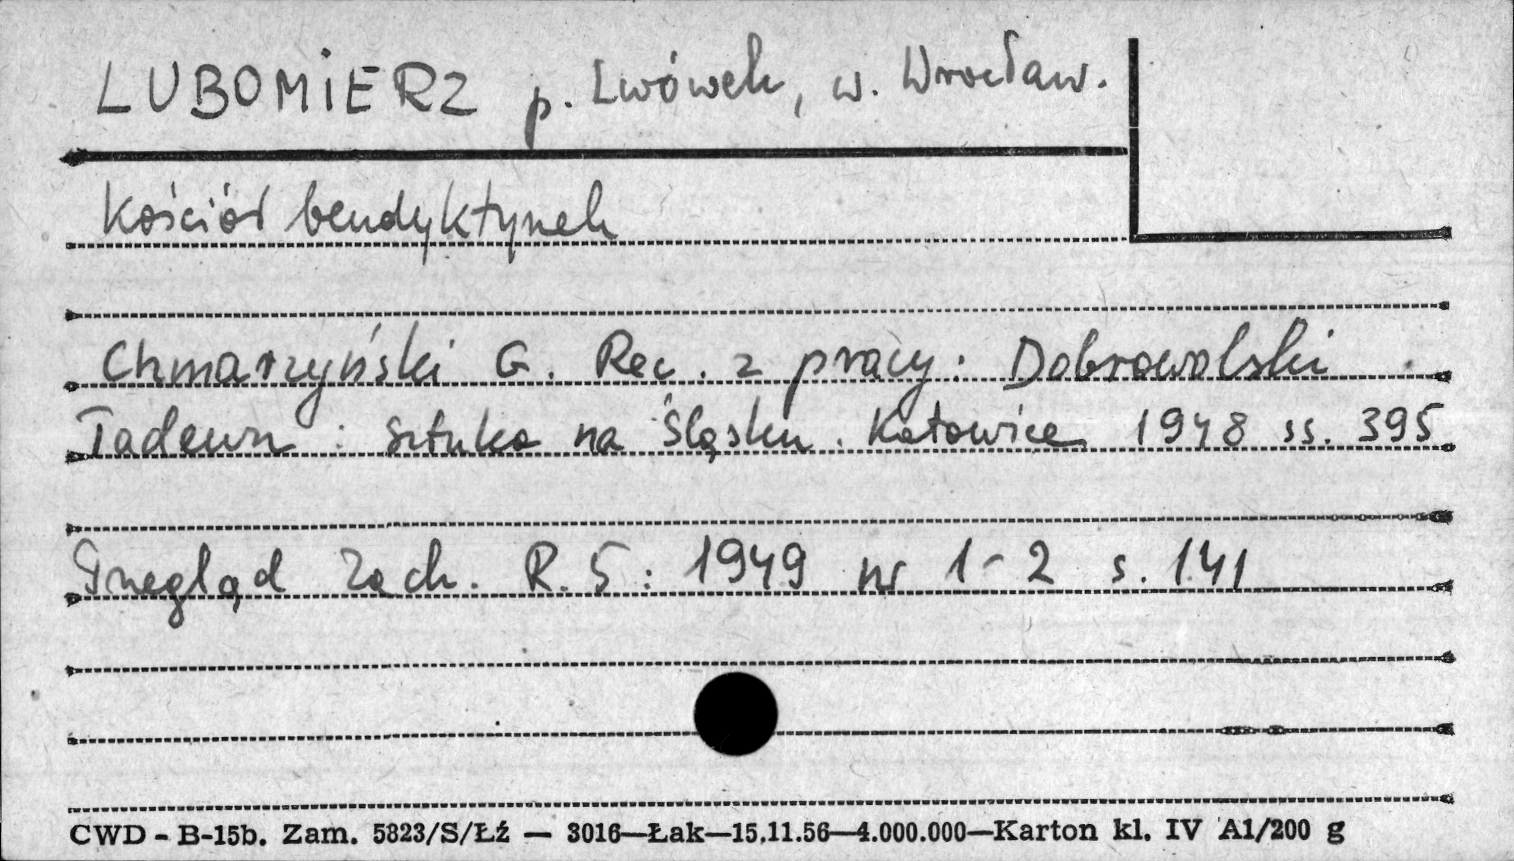 LUBOMIERZ p. Lwówek, w. Wrocław.
Kościół bendyktynek
Chmarzyński G. Rec. z pracy: Dobrowolski
Tadeusz: Sztuka na Śląsku. Katowice 1948 ss. 395
Przegląd Zach. R. 5: 1949 nr 1-2 s. 141
CWD - B-15b. Zam. 5823/S/Łź — 3016—Łak—15.11.56—4.000.000—Karton kl. IV A1/200 g